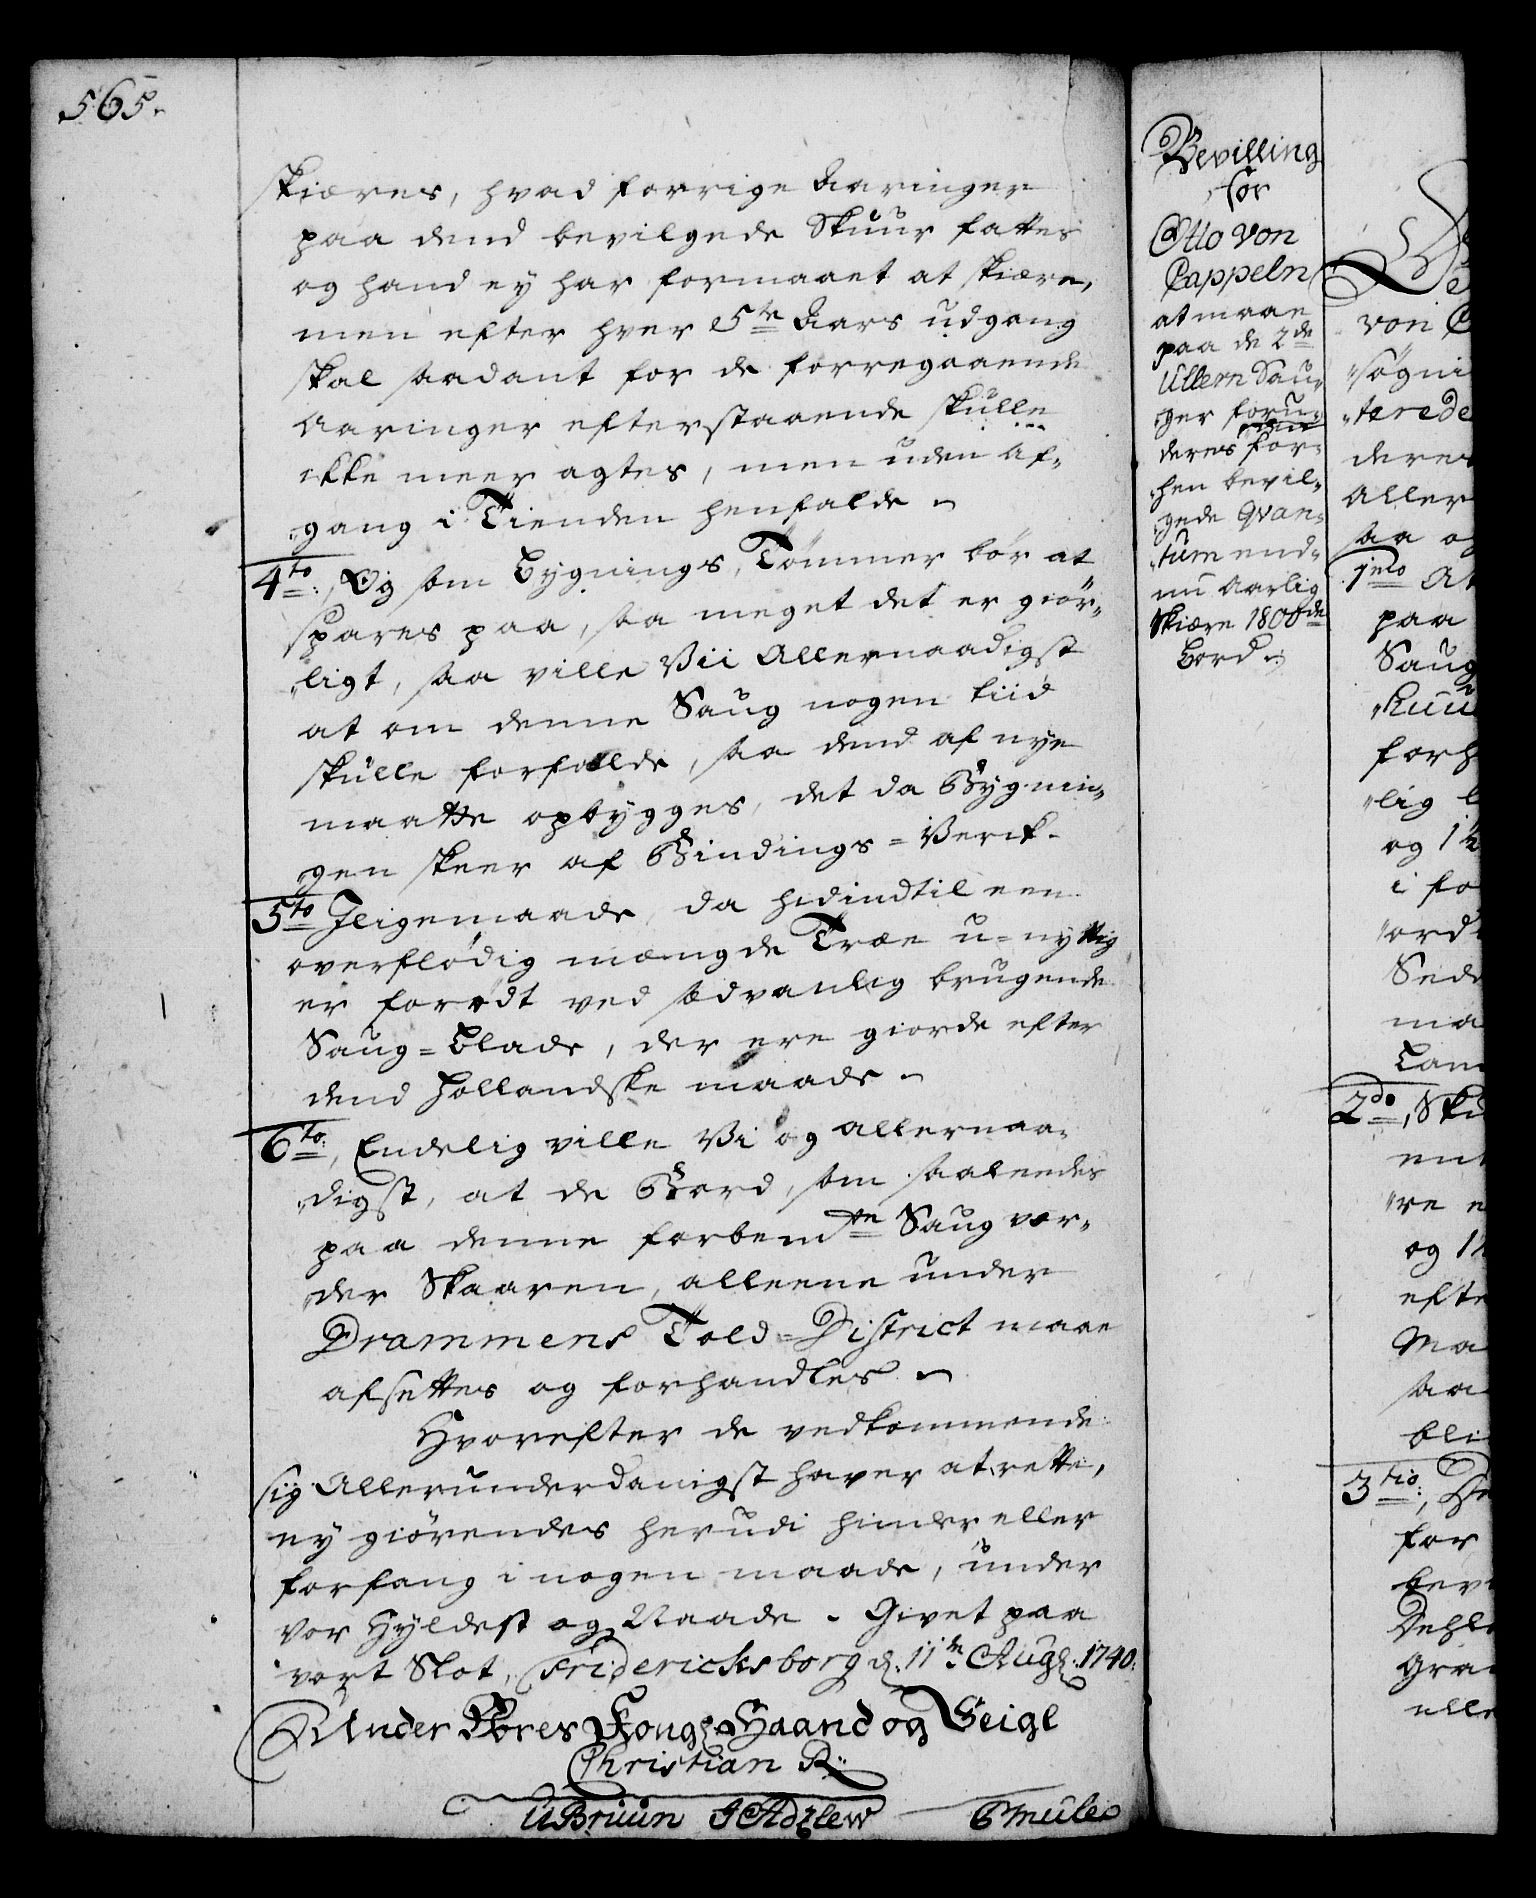 565.
skiæres, hvad forrige Aaringer
paa dend bevilgede Skuur fattes
og hand ey har formaaet at skiære,
men efter hver 5te Aars udgang
skal saadant for de forregaaende
Aaringer efterstaaende skulle
ikke meer agtes, men uden Af-
gang i Tienden henfalde
4to: Og som Bygnings Tømmer bør at
spares paa, saa meget det er giør-
ligt, saa ville Vii Allernaadigst
at om denne Saug nogen tiid
skulle forfalde, saa dend af nye
maatte opbygges, det da Bygnin-
gen skeer af Bindings=Verck.
5to Iligemaade, da hidindtil een
overflødig mængde Træe u=nyttig
er forødt ved sædvanlig brugende
Saug=Blade, der ere giorde efter
dend Hollandske maade
6to:, Endelig ville Vi og allernaa-
digst, at de Bord, som saaleedes
paa denne forbemte Saug vor-
der Skaaren, alleene under
Drammens Told=District maae
afsettes og forhandles
Hvorefter de vedkommende
sig Allerunderdanigst haver at rette,
ey giørendes herudi hinder eller
forfang i nogen maade, under
vor Hyldest og Naade. Givet paa
vort Slot, Fridericksborg d. 11te Aug. 1740.
Under Vores Kongl. Haand og Seigl
Christian R.
U Bruun
Bevilling
for
Otto von
Cappeln
at maae
paa de 2de
Ullern Sau-
ger foru-
den
deres for-
hen bevil-
gede Qvan-
tum end-
nu Aarlig
Skiære 1800de
Bord
von C
søgni
terede
deres
Aller
saa og
1mo At
paa
Saug
Kuu
forh
lig
og 1½
i fo
ord
Sed
ma
2do, Sk
ent
re e
og 1½
efte
Ma
saa
bli
3tio:, De
for
bev
Dehl
Gra
elle